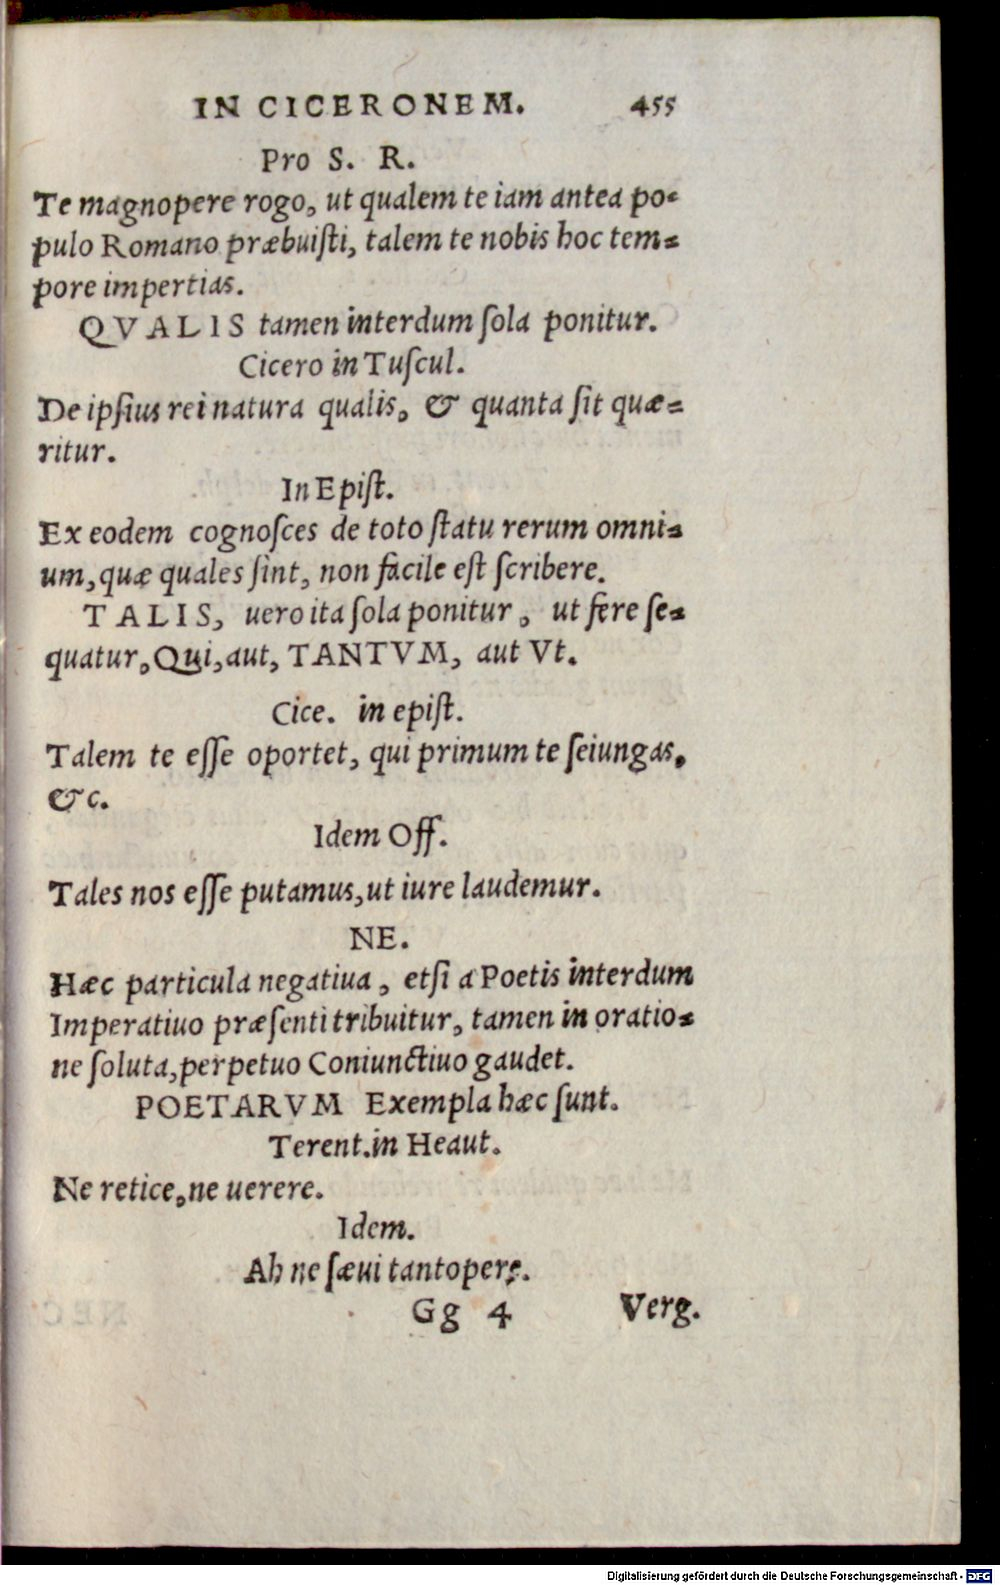 IN CICERONEM. 455
Pro S. R.
Te magnopere rogo, ut qualem te iam antea po-
pulo Romano præbuiſti, talem te nobis hoc tem-
pore impertias.
QVALIS tamen interdum ſola ponitur.
Cicero in Tuſcul.
De ipſius rei natura qualis, & quanta ſit quæ-
ritur.
In Epiſt.
Ex eodem cognoſces de toto ſtatu rerum omni-
um, quæ quales ſint, non facile eſt ſcribere.
TALIS, uero ita ſola ponitur, ut fere ſe-
quatur, Qui, aut, TANTVM, aut Vt.
Cice. in epiſt.
Talem te eſſe oportet, qui primum te ſeiungas,
&c.
Idem Off.
Tales nos eſſe putamus, ut iure laudemur.
NE.
Hæc particula negatiua, etſi a Poetis interdum
Imperatiuo præſenti tribuitur, tamen in oratio-
ne ſoluta, perpetuo Coniunctiuo gaudet.
POETARVM Exempla hæc ſunt.
Terent. in Heaut.
Ne retice, ne uerere.
Idem.
Ah ne ſæui tantopere.
Gg 4 Verg.
Digitalisierung gefördert durch die Deutsche Forschungsgemeinschaft - DFG